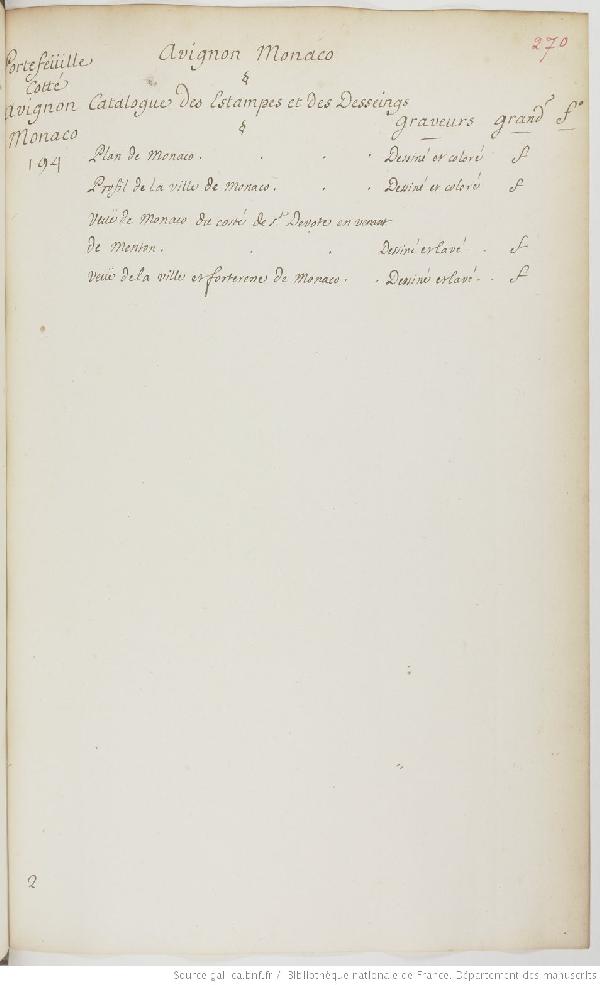 270
Avignon Monaco
Portefeüille
Cotté
Avignon
Monaco
194
§
Catalogue des Estampes et des Desseings
§
graveurs grand.r f.o
Plan de Monaco. . . . Dessiné et coloré f
Profil de la ville de Monaco. . . . Dessiné et coloré f
Veüe de Monaco du costé de s.te Devote en venant
de Menton. . . Dessiné et lavé . f
Veüe de la ville et forteresse de Monaco. . Dessiné et lavé. . f
2
Source gallica.bnf.fr / Bibliothèque nationale de France. Département des manuscrits